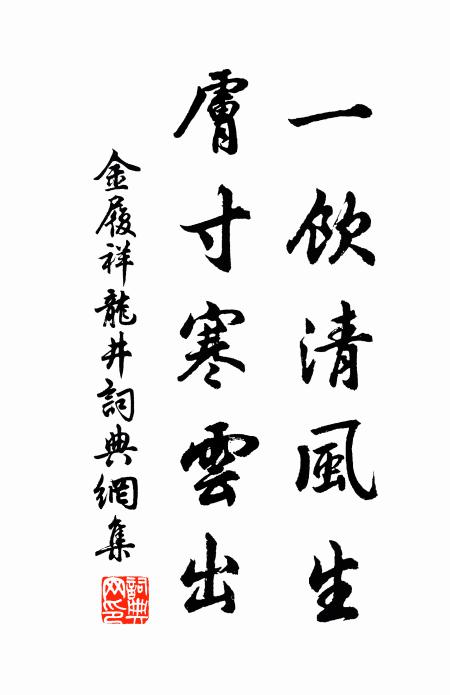 一飲清風生
膚寸寒雲出
金履祥龍井詞典網集
詞典網印